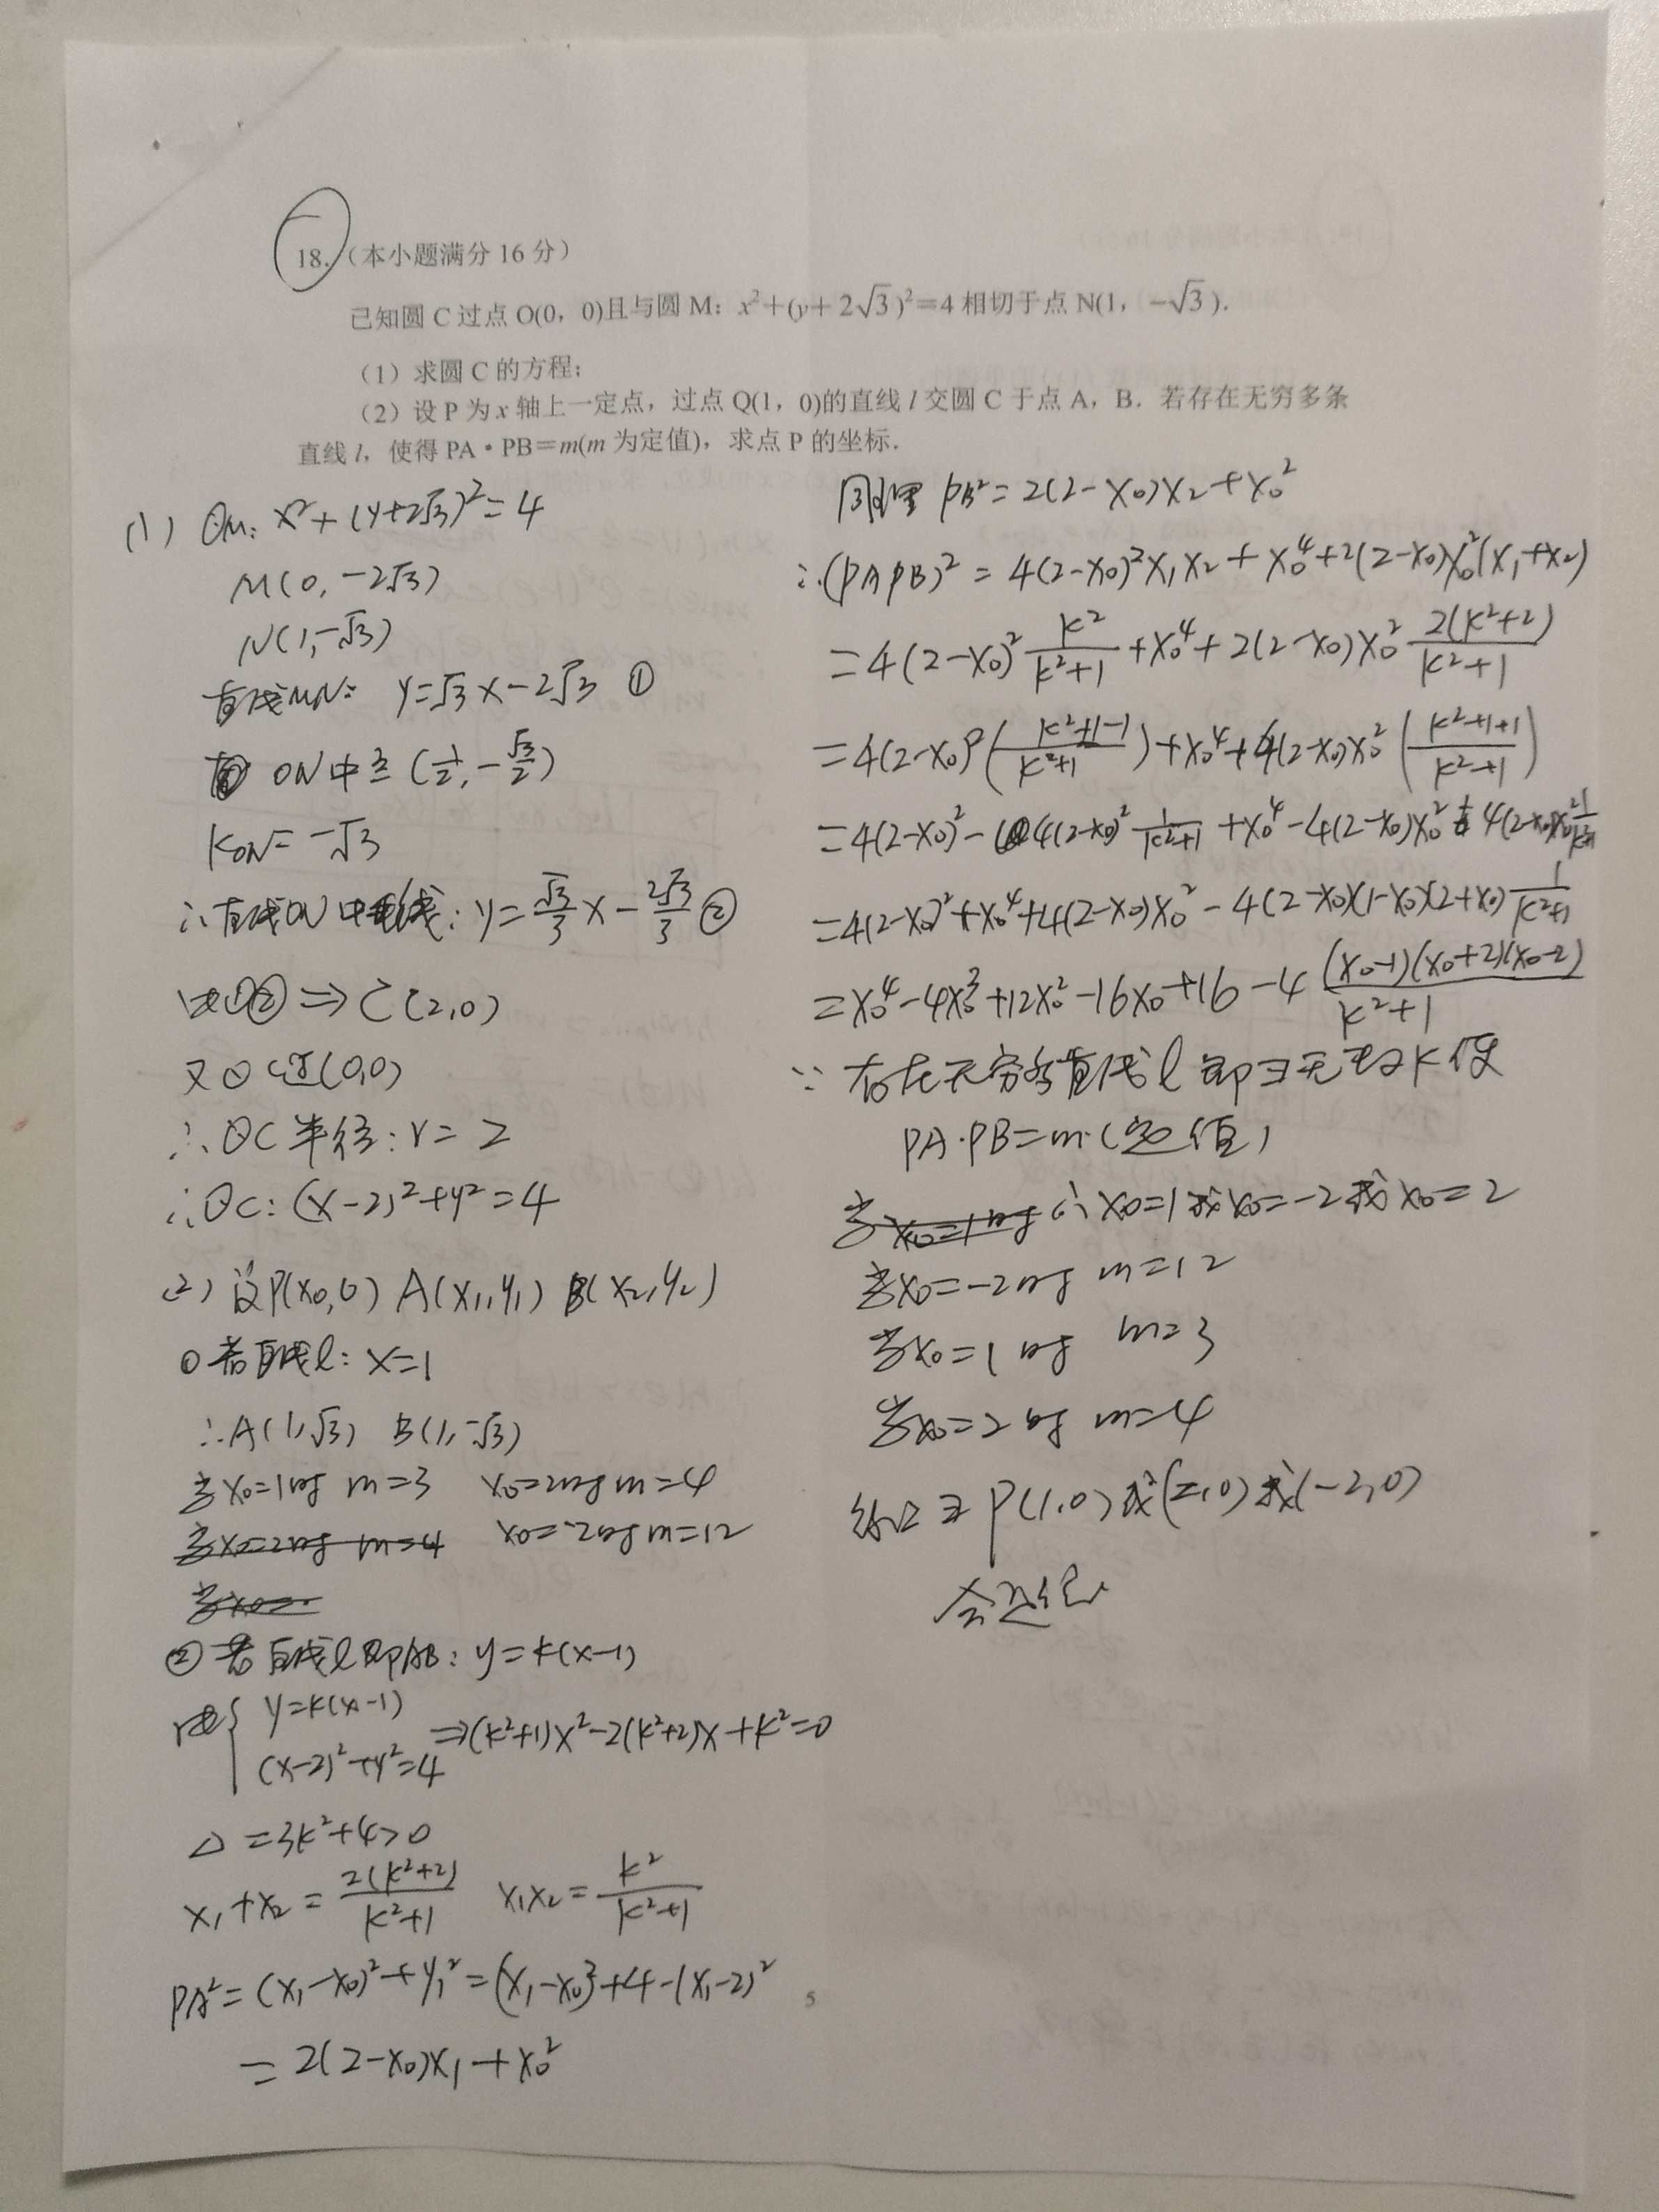 18.(本小题满分 16 分)
已知圆 C 过点 O(0, 0)且与圆 M: x²+(y+2√3)²=4 相切于点 N(1, -√3).
(1) 求圆 C 的方程;
(2) 设 P 为 x 轴上一定点,过点 Q(1, 0)的直线 l 交圆 C 于点 A, B. 若存在无穷多条
直线 l, 使得 PA·PB=m(m 为定值), 求点 P 的坐标.
(1) ⊙M: x²+(y+2√3)²=4
M(0,-2√3)
N(1,-√3)
直线MN: y=√3x-2√3 ①
ON中点(1/2,-√3/2)
KON=-√3
∴直线ON中垂线: y=√3/3 x-2√3/3 ②
由①②⇒C(2,0)
又⊙C过(0,0)
∴⊙C半径: r=2
∴⊙C: (x-2)²+y²=4
(2) 设P(x₀,0) A(x₁,y₁) B(x₂,y₂)
①若直线l: x=1
∴A(1,√3) B(1,-√3)
当x₀=1时 m=3 x₀=2时m=4
当x₀=2时 m=4 x₀=-2时m=12
②若直线l即AB: y=k(x-1)
由{ y=k(x-1)
(x-2)²+y²=4 ⇒(k²+1)x²-2(k²+2)x+k²=0
△=3k²+4>0
x₁+x₂=2(k²+2)/(k²+1) x₁x₂=k²/(k²+1)
PA²=(x₁-x₀)²+y₁²=(x₁-x₀)²+4-(x₁-2)²
=2(2-x₀)x₁+x₀²
5
同理 PB²=2(2-x₀)x₂+x₀²
∴(PAPB)²=4(2-x₀)²x₁x₂+x₀⁴+2(2-x₀)x₀²(x₁+x₂)
=4(2-x₀)² k²/(k²+1)+x₀⁴+2(2-x₀)x₀² 2(k²+2)/(k²+1)
=4(2-x₀)²((k²+1-1)/(k²+1))+x₀⁴+4(2-x₀)x₀²((k²+1+1)/(k²+1))
=4(2-x₀)²-4(2-x₀)² 1/(k²+1)+x₀⁴-4(2-x₀)x₀²+4(2-x₀)x₀² 1/(k²+1)
=4(2-x₀)²+x₀⁴+4(2-x₀)x₀²-4(2-x₀)(1-x₀)(2+x₀) 1/(k²+1)
=x₀⁴-4x₀³+12x₀²-16x₀+16-4 (x₀-1)(x₀+2)(x₀-2)/(k²+1)
∵存在无穷多直线l即∃无数k使
PA·PB=m(定值)
当x₀=1时 ∴x₀=1或x₀=-2或x₀=2
当x₀=-2时 m=12
当x₀=1时 m=3
当x₀=2时 m=4
综上 ∃ P(1,0)或(2,0)或(-2,0)
合题意